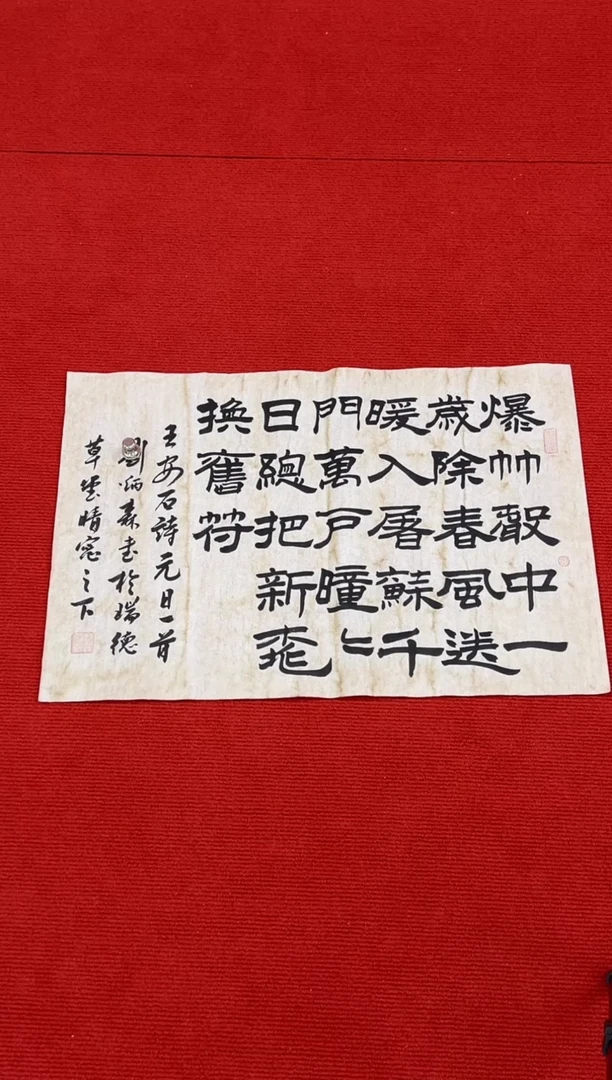 爆竹聲中一
歲除春風送
暖入屠蘇千
門萬戸曈〻
日總把新桃
換舊符
王安石詩元日一首
劉炳森書於瑞德
草堂晴窓之下